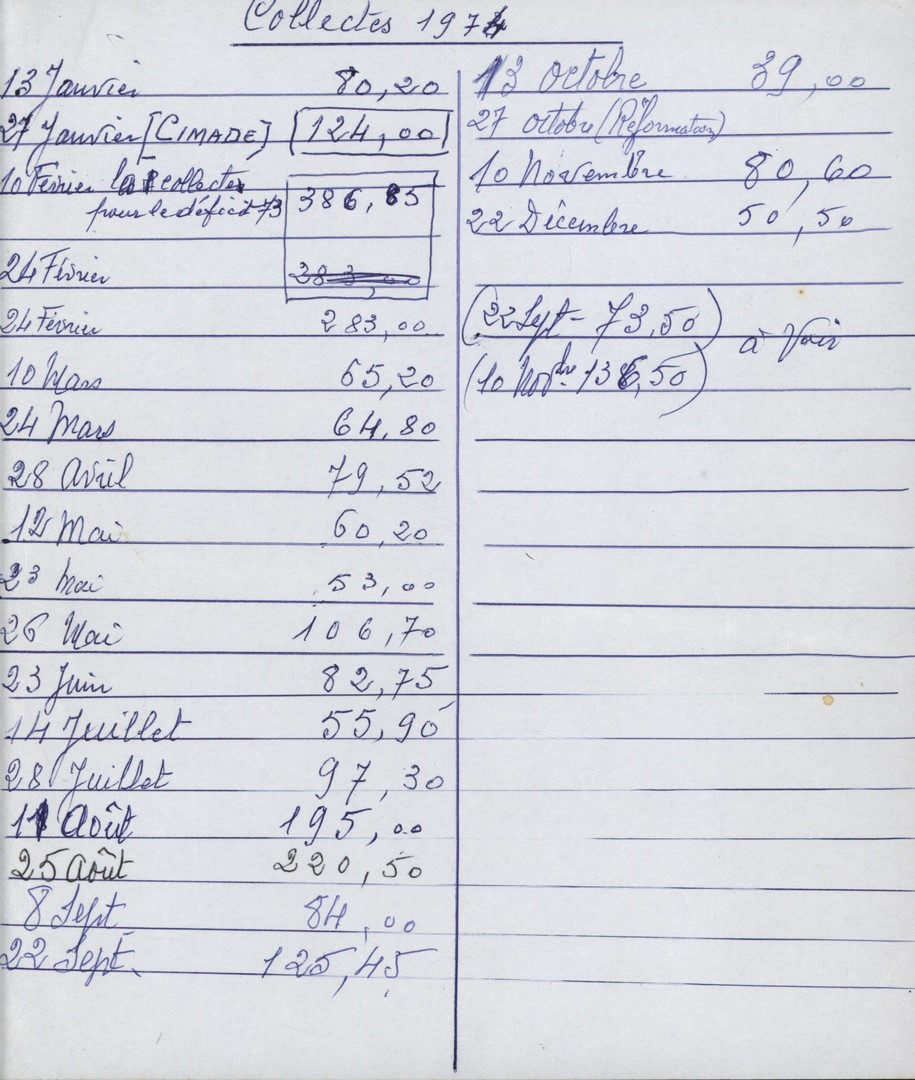 Collectes 1974
13 Janvier 80,20
27 Janvier [CIMADE] 124,00
10 Février la collecte
pour le déficit 73 386,85
24 Février 283,00
24 Février 283,00
10 Mars 65,20
24 Mars 64,80
28 Avril 79,52
12 Mai 60,20
23 Mai 53,00
26 Mai 106,70
23 Juin 82,75
14 Juillet 55,90
28 Juillet 97,30
11 Août 195,00
25 Août 220,50
8 Sept. 84,00
22 Sept. 125,45
13 octobre 89,00
27 octobre (Réformation)
10 Novembre 80,60
22 Décembre 50,50
(22 Sept - 73,50)
à Voir
(10 Novbre 136,50)